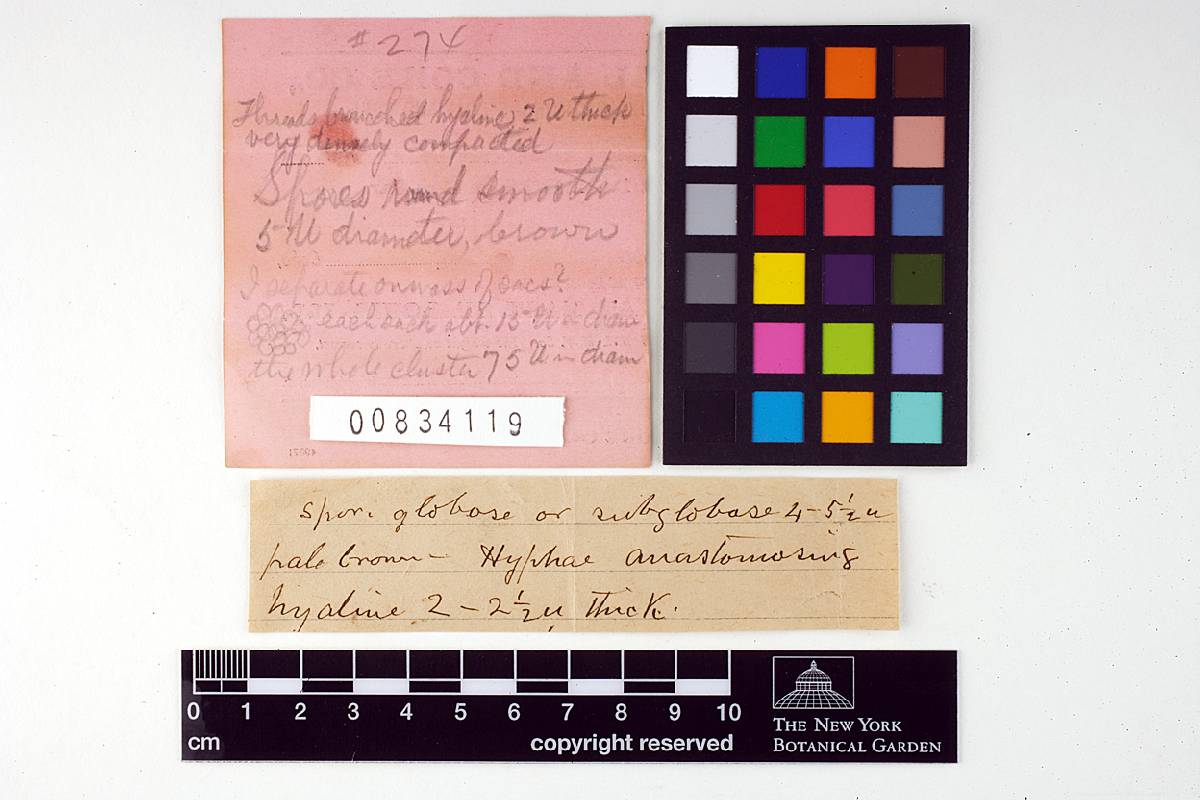 #274
Threads branched hyaline 2 U thick
very densely compacted
Spores round smooth
5 U diameter, brown
I separate on mass of sacs?
each sack abt. 15 U in diam
the whole cluster 75 U in diam
00834119
Spore globose or subglobose 4-5½u
pale brown - Hyphae anastomosing
hyaline 2 - 2½u thick.
0 1 2 3 4 5 6 7 8 9 10
cm
copyright reserved
THE NEW YORK
BOTANICAL GARDEN